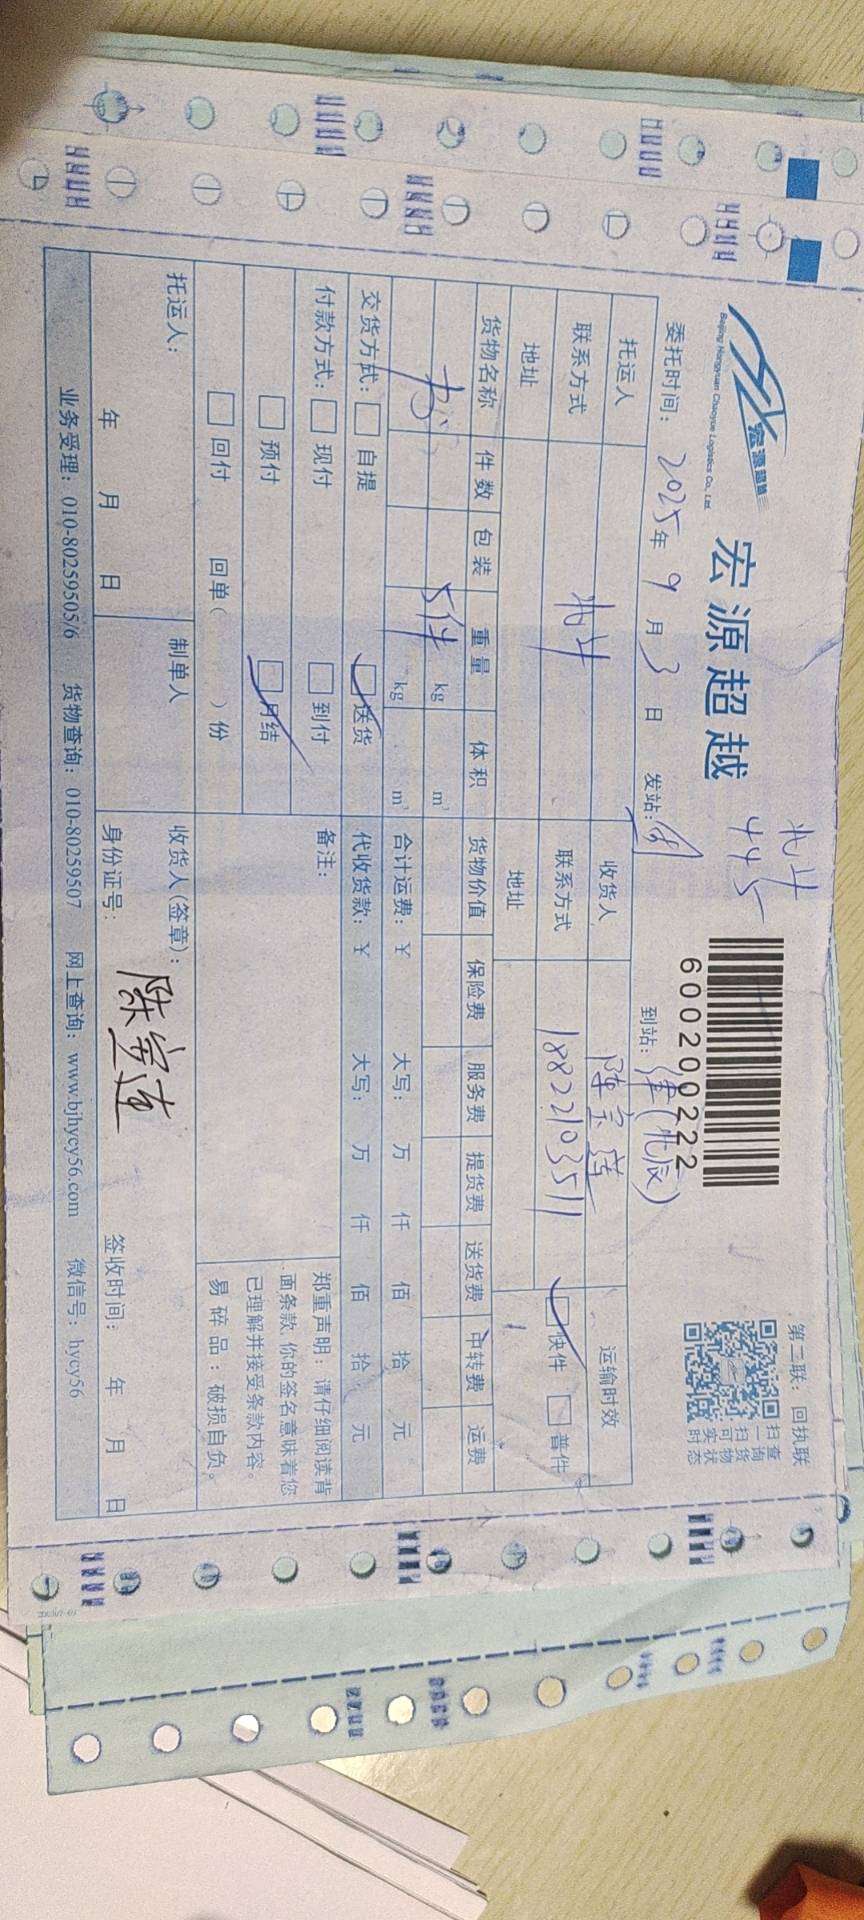 北斗
445
宏源超越
Beijing Hongyuan Chaoyue Logistics Co., Ltd.
宏源超越
600200222
第二联：回执联
扫一扫可实时
查询货物状态
委托时间：2025年9月3日 发站： 到站：津(北辰)
托运人 北斗 收货人 陈宝莲 运输时效
联系方式 联系方式 18822103511 快件 普件
地址 地址
货物名称 件数 包装 重量 体积 货物价值 保险费 服务费 提货费 送货费 中转费 运费
书 5件 kg m³
kg m³
合计运费：￥ 大写： 万 仟 佰 拾 元
交货方式： 自提 送货 代收货款：￥ 大写： 万 仟 佰 拾 元
付款方式： 现付 到付 备注：
预付 月结
回付 回单（ ）份
郑重声明：请仔细阅读背
面条款,你的签名意味着您
已理解并接受条款内容。
易碎品：破损自负。
托运人： 制单人 收货人(签章)：陈宝莲
年 月 日 身份证号： 签收时间： 年 月 日
业务受理：010-80259505/6 货物查询：010-80259507 网上查询：www.bjhycy56.com 微信号：hycy56